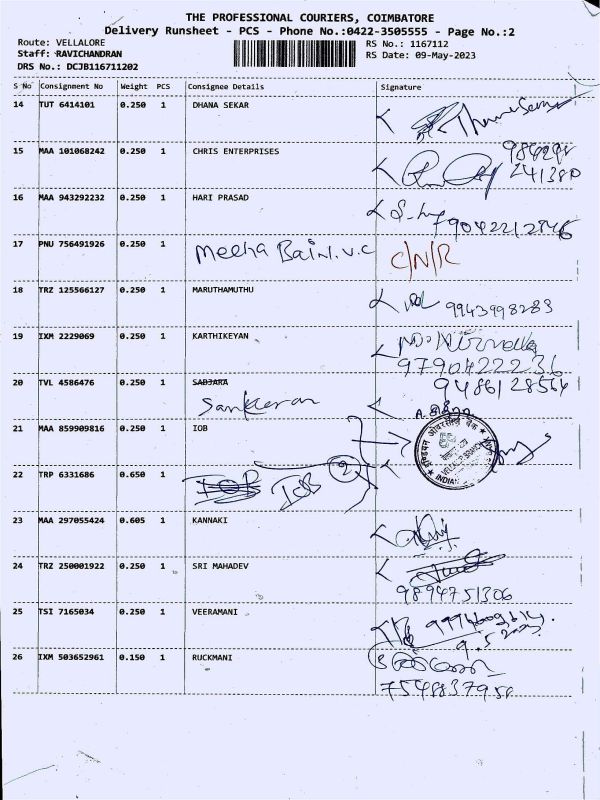 THE PROFESSIONAL COURIERS, COIMBATORE
Delivery Runsheet - PCS - Phone No.:0422-3505555 - Page No.:2
Route: VELLALORE
Staff: RAVICHANDRAN
DRS No.: DCJB116711202
RS No.: 1167112
RS Date: 09-May-2023
S No Consignment No Weight PCS Consignee Details Signature
14 TUT 6414101 0.250 1 DHANA SEKAR
15 MAA 101068242 0.250 1 CHRIS ENTERPRISES
241380
16 MAA 943292232 0.250 1 HARI PRASAD
17 PNU 756491926 0.250 1 Meena Bai N.V.C C/N/R
18 TRZ 125566127 0.250 1 MARUTHAMUTHU
9943998283
19 IXM 2229069 0.250 1 KARTHIKEYAN
9790422236
20 TVL 4586476 0.250 1 SABJARA 9486128564
Sankaran
21 MAA 859909816 0.250 1 IOB
22 TRP 6331686 0.650 1 IOB IOB 2
23 MAA 297055424 0.605 1 KANNAKI
24 TRZ 250001922 0.250 1 SRI MAHADEV
9894751306
25 TSI 7165034 0.250 1 VEERAMANI
9.5.2023
26 IXM 503652961 0.150 1 RUCKMANI